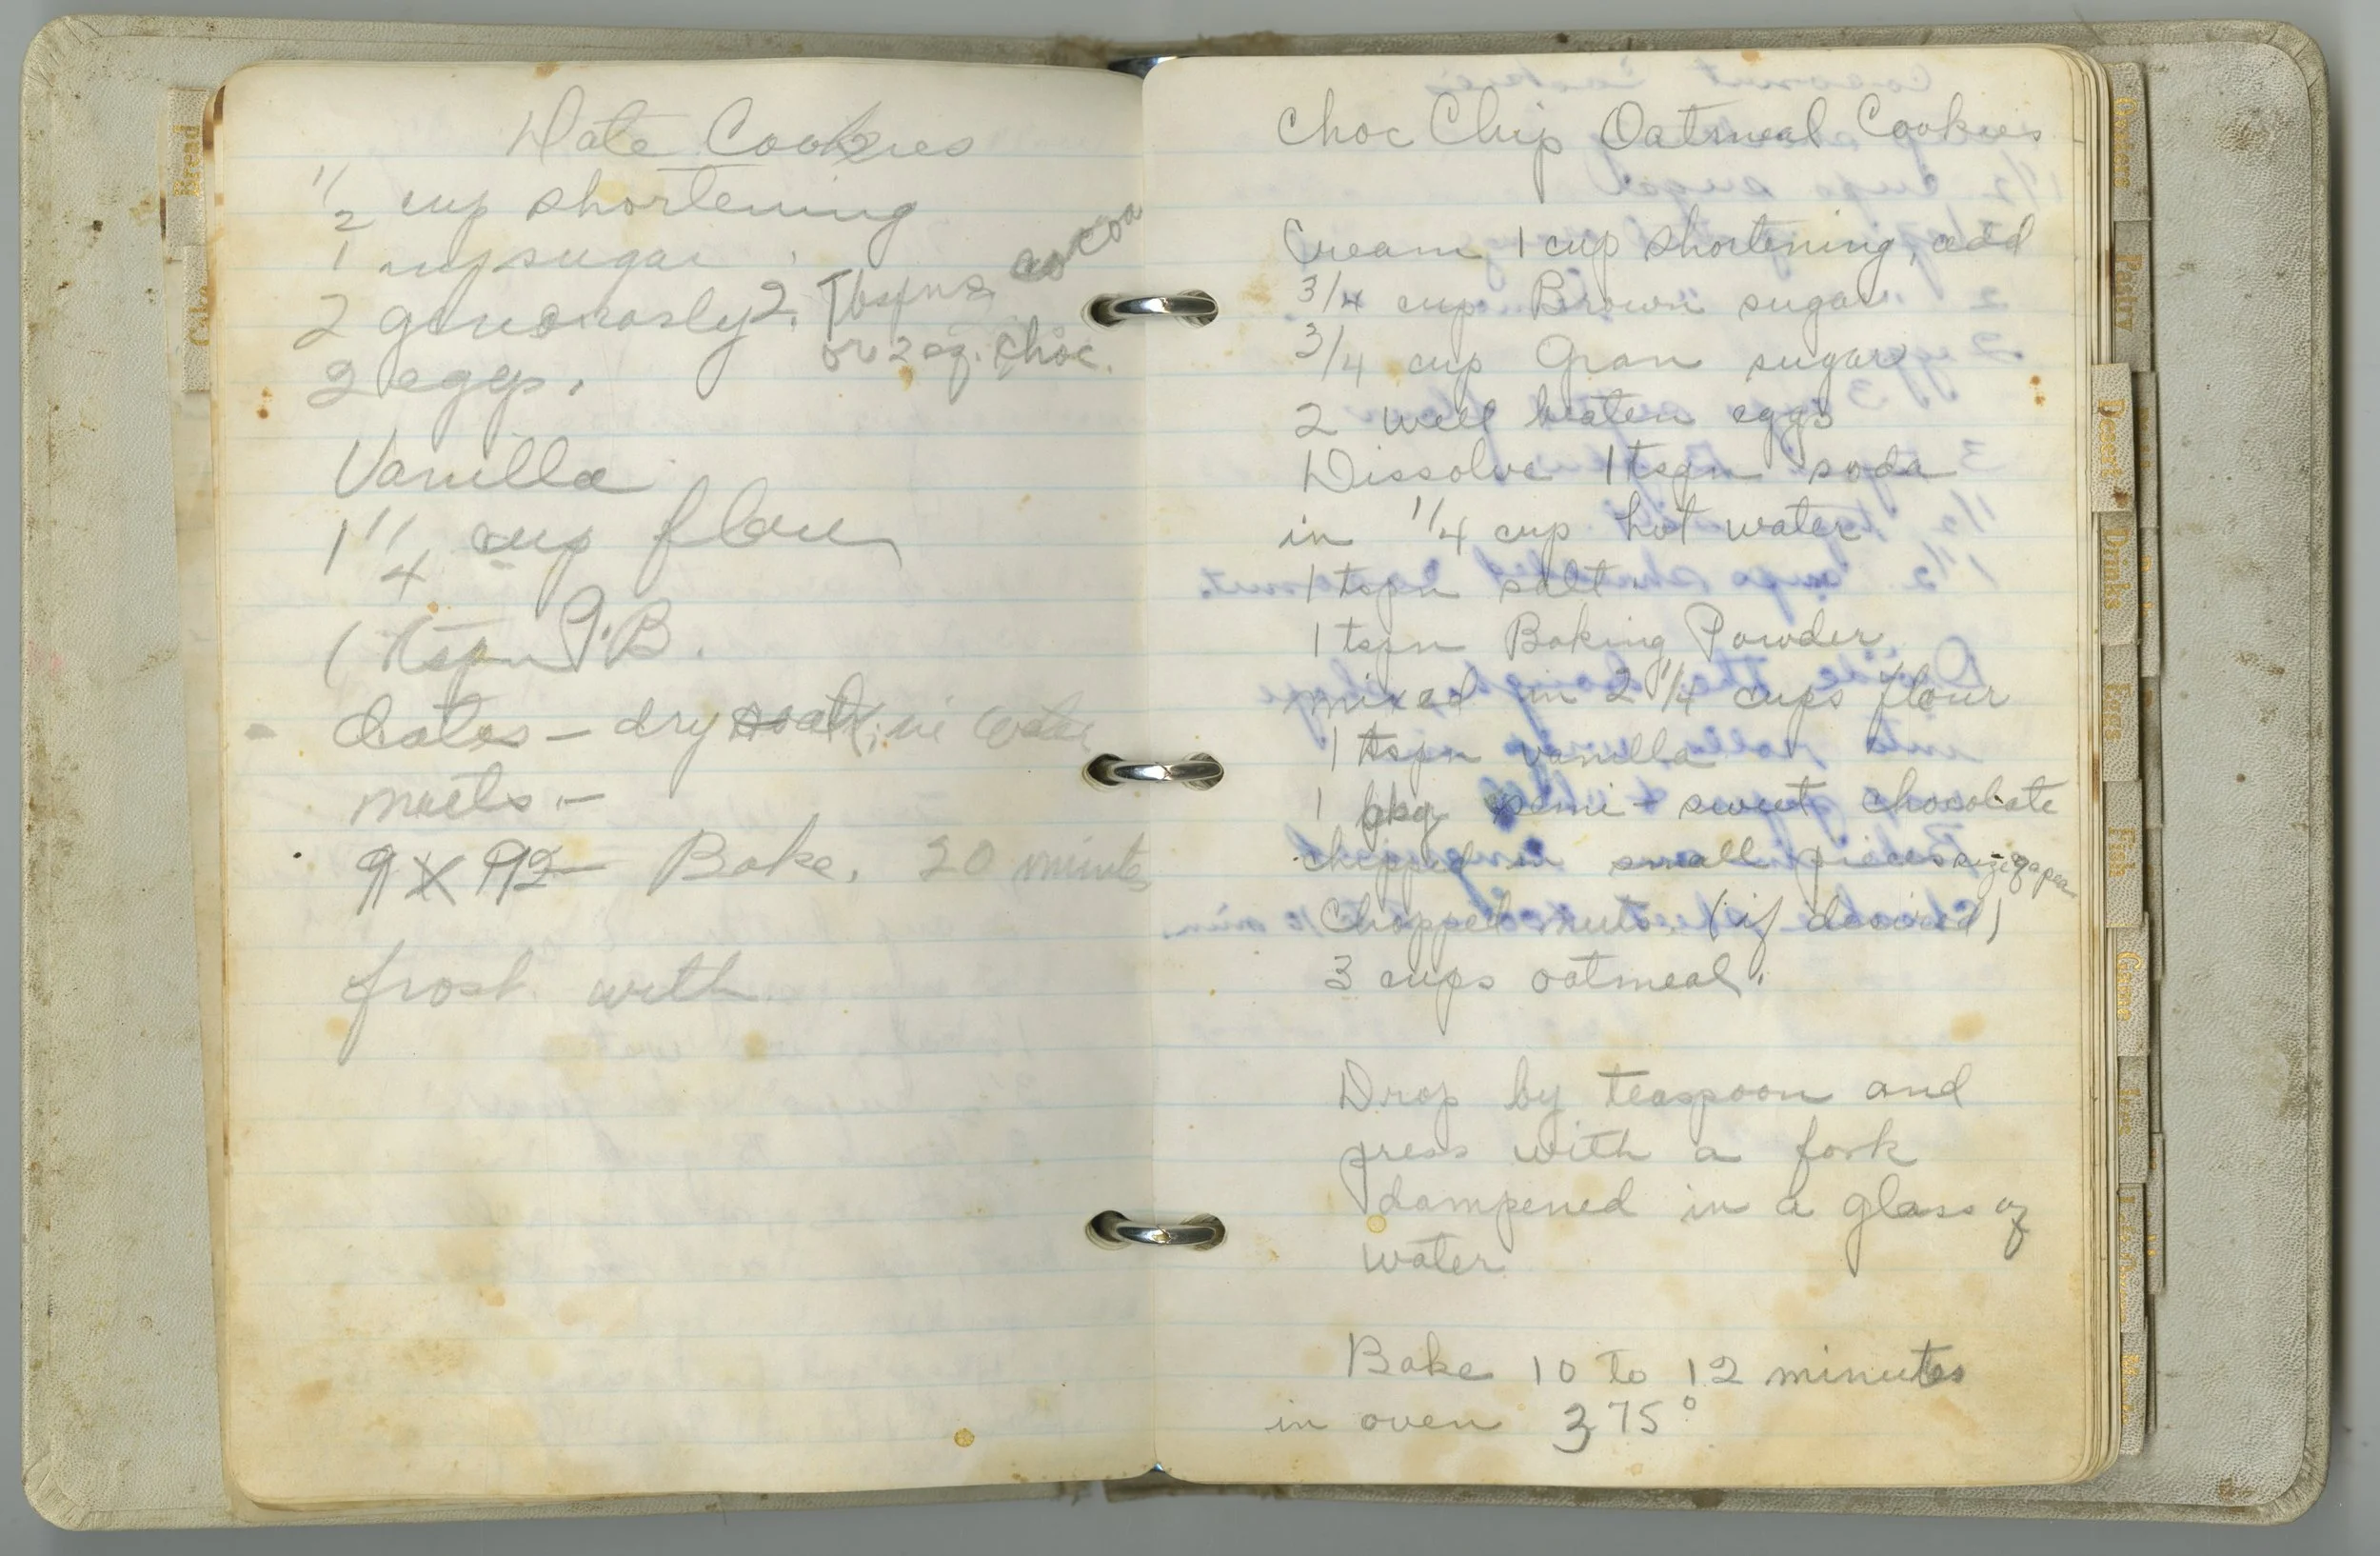 Date Cookies
1/2 cup shortening
1 cup sugar
2 generously 2 Tbspns cocoa
or 2 sq. choc.
2 eggs.
Vanilla
1 1/4 cup flour
1 tspn P.B.
dates – dry soak in water
nuts –
9 X 92 – Bake. 20 minutes
frost with
Choc Chip Oatmeal Cookies
Cream 1 cup shortening, add
3/4 cup Brown sugar
3/4 cup Gran sugar
2 well beaten eggs
Dissolve 1 tspn soda
in 1/4 cup hot water
1 tspn salt
1 tspn Baking Powder
mixed in 2 1/4 cups flour
1 tspn vanilla
1 pkg semi-sweet chocolate
chipped in small pieces size of a pea
Chopped nuts (if desired)
3 cups oatmeal.
Drop by teaspoon and
press with a fork
dampened in a glass of
water
Bake 10 to 12 minutes
in oven 375°
Bread
Cake
Pastry
Dessert
Drinks
Eggs
Fish
Game